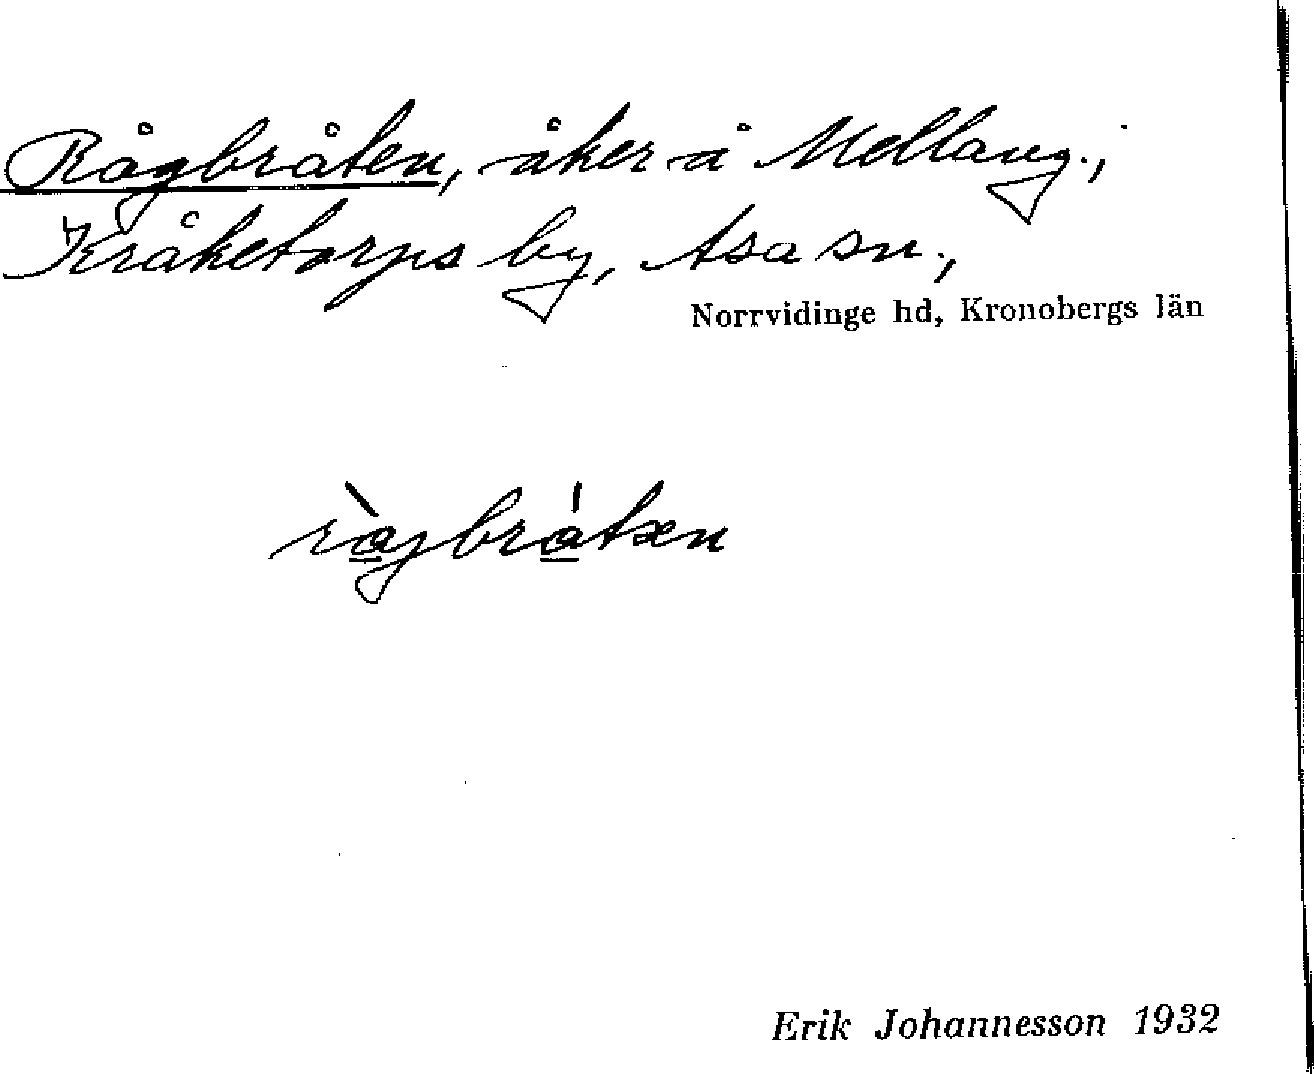 Rågbråten, åker å Mellang.,
Kråketorps by, Asa sn.,
Norrvidinge hd, Kronobergs län
ràgbrátæn
Erik Johannesson 1932